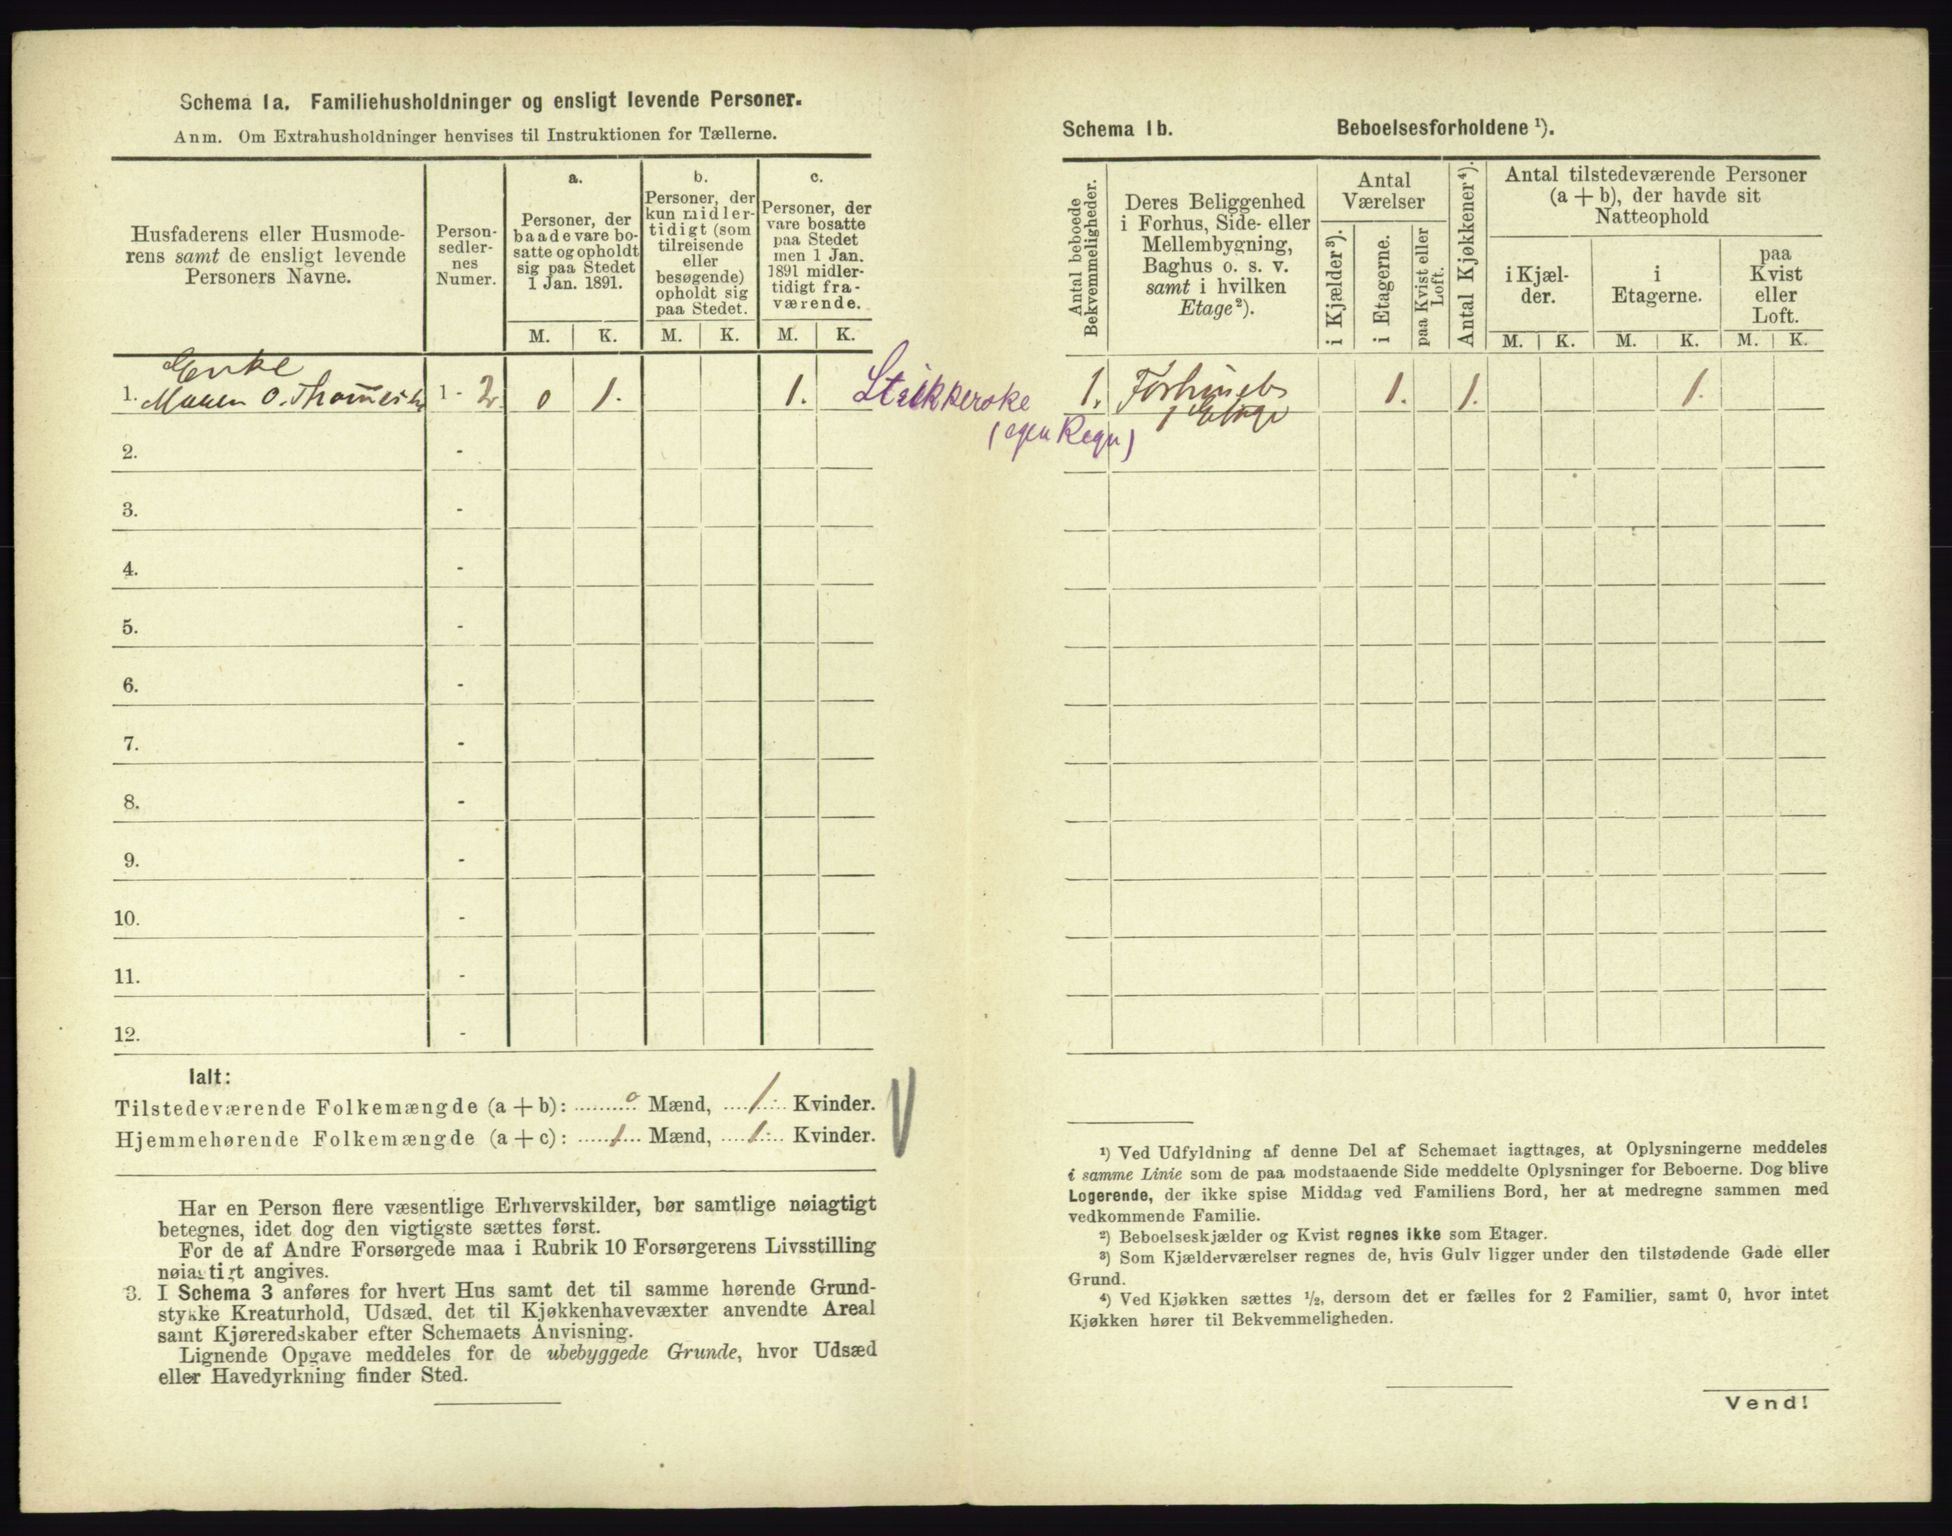 Schema 1a. Familiehusholdninger og ensligt levende Personer.
Anm. Om Extrahusholdninger henvises til Instruktionen for Tællerne.
Husfaderens eller Husmode-
rens samt de ensligt levende
Personers Navne.
Person-
sedler-
nes
Numer.
a.
Personer, der
baade vare bo-
satte og opholdt
sig paa Stedet
1 Jan. 1891.
b.
Personer, der
kun midler-
tidigt (som
tilreisende
eller
besøgende)
opholdt sig
paa Stedet.
c.
Personer, der
vare bosatte
paa Stedet
men 1 Jan.
1891 midler-
tidigt fra-
værende.
M. K. M. K. M. K.
Enke
1. Maren O. 1 - 2 0 1. 1.
(egen Regn)
2. -
3. -
4. -
5. -
6. -
7. -
8. -
9. -
10. -
11. -
12. -
Ialt:
Tilstedeværende Folkemængde (a + b): 0 Mænd, 1 Kvinder.
Hjemmehørende Folkemængde (a + c): 1 Mænd, 1 Kvinder.
Har en Person flere væsentlige Erhvervskilder, bør samtlige nøiagtigt
betegnes, idet dog den vigtigste sættes først.
For de af Andre Forsørgede maa i Rubrik 10 Forsørgerens Livsstilling
nøiagtigt angives.
3. I Schema 3 anføres for hvert Hus samt det til samme hørende Grund-
stykke Kreaturhold, Udsæd, det til Kjøkkenhavevæxter anvendte Areal
samt Kjøreredskaber efter Schemaets Anvisning.
Lignende Opgave meddeles for de ubebyggede Grunde, hvor Udsæd
eller Havedyrkning finder Sted.
Schema 1b. Beboelsesforholdene ¹).
Antal beboede
Bekvemmeligheder.
Deres Beliggenhed
i Forhus, Side- eller
Mellembygning,
Baghus o. s. v.
samt i hvilken
Etage²).
Antal
Værelser
i Kjælder³).
i Etagerne.
paa Kvist eller
Loft.
Antal Kjøkkener⁴).
Antal tilstedeværende Personer
(a + b), der havde sit
Natteophold
i Kjæl-
der.
i
Etagerne.
paa
Kvist
eller
Loft.
M. K. M. K. M. K.
1. 1. 1. 1.
1 Etage
¹) Ved Udfyldning af denne Del af Schemaet iagttages, at Oplysningerne meddeles
i samme Linie som de paa modstaaende Side meddelte Oplysninger for Beboerne. Dog blive
Logerende, der ikke spise Middag ved Familiens Bord, her at medregne sammen med
vedkommende Familie.
²) Beboelseskjælder og Kvist regnes ikke som Etager.
³) Som Kjælderværelser regnes de, hvis Gulv ligger under den tilstødende Gade eller
Grund.
⁴) Ved Kjøkken sættes ½, dersom det er fælles for 2 Familier, samt 0, hvor intet
Kjøkken hører til Bekvemmeligheden.
Vend!